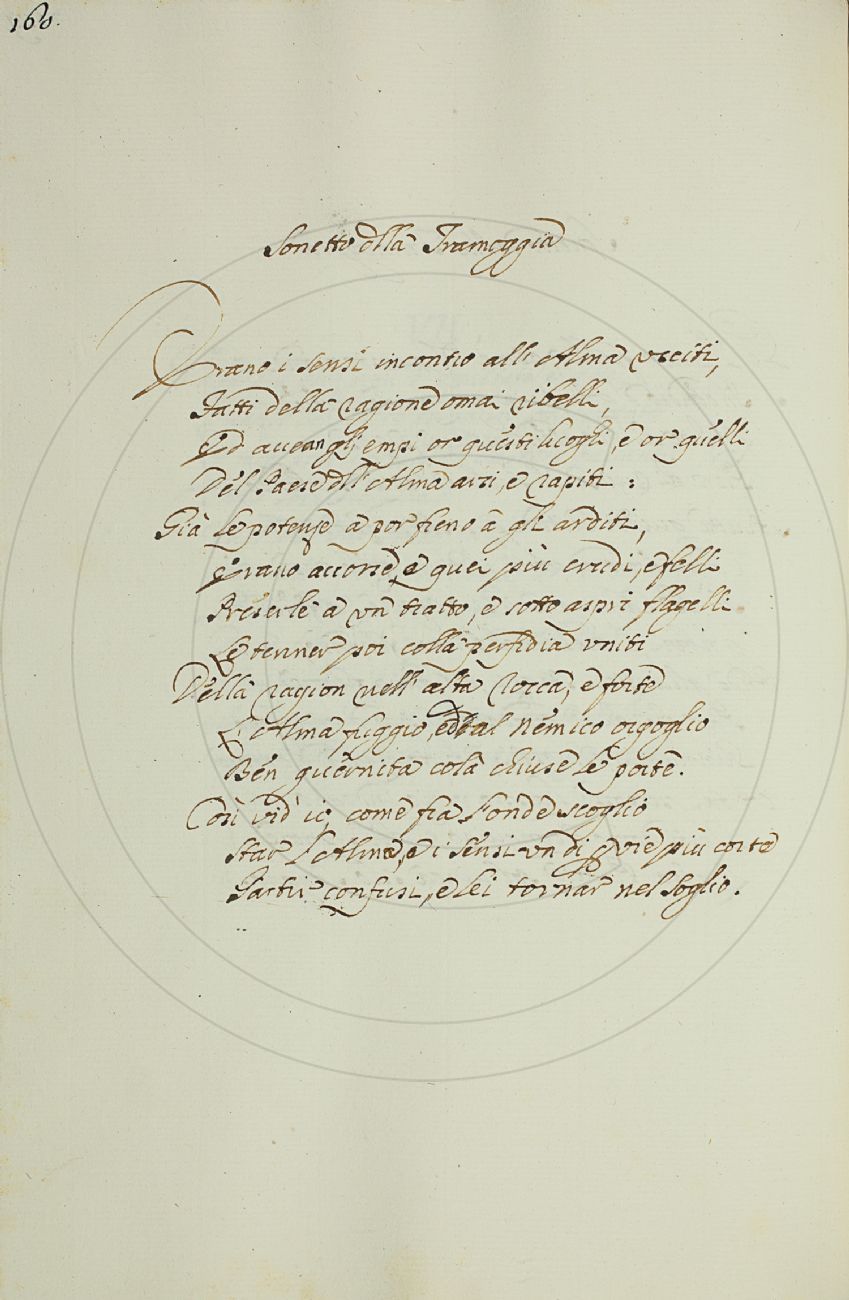 160.
Sonetto della Tramoggia
Erano i sensi incontro all'Alma usciti,
Fatti della ragione omai ribelli,
Ed accean gli empi or questi luoghi, e or quelli
Del Paese dell'Alma arsi, e rapiti:
Già le potenze a por freno a gli arditi,
Erano accorse, e quei più crudi, e felli
Preserle a un tratto, e sotto aspri flagelli
Le tenner poi colla perfidia uniti
Della ragion nell'alta rocca, e forte
L'Alma fuggio, ed al nemico orgoglio
Ben guernita colà chiuse le porte.
Così vid'io, come fra l'onde scoglio
Star l'Alma, e i sensi un dì per vie più corte
Partir confusi, e lei tornar nel soglio.